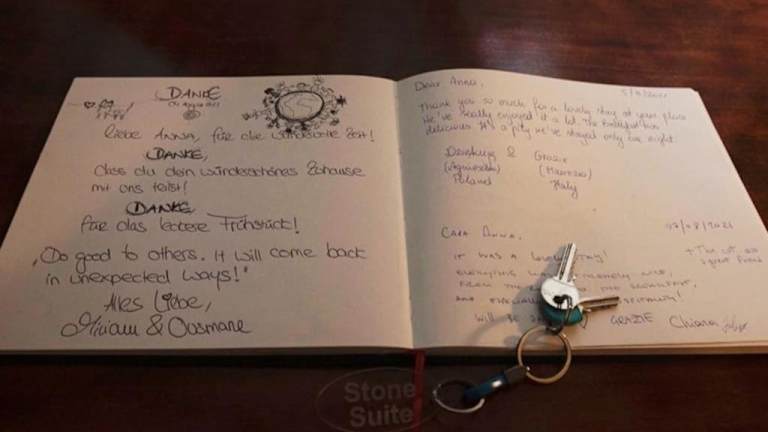 DANKE
Liebe ANNA, für die wunderbare Zeit!
DANKE,
dass du dein wunderschönes Zuhause
mit uns teilst!
DANKE
für das leckere Frühstück!
„Do good to others. It will come back
in unexpected ways!"
Alles Liebe,
Miriam & Ousmane
Dear Anna,
Thank you so much for a lovely stay at your place
We've really enjoyed it a lot. The breakfast was
delicious. It's a pity we've stayed only one night
& Grazie
(Agnieszka) (Maurizio)
Poland Italy
07/08/2021
CARA ANNA,
+ The cat is a
great friend
IT WAS A LOVELY STAY!
EVERYTHING WAS NICE,
FROM THE TO THE BREAKFAST,
AND
WILL BE GRAZIE Chiara
Stone
Suite